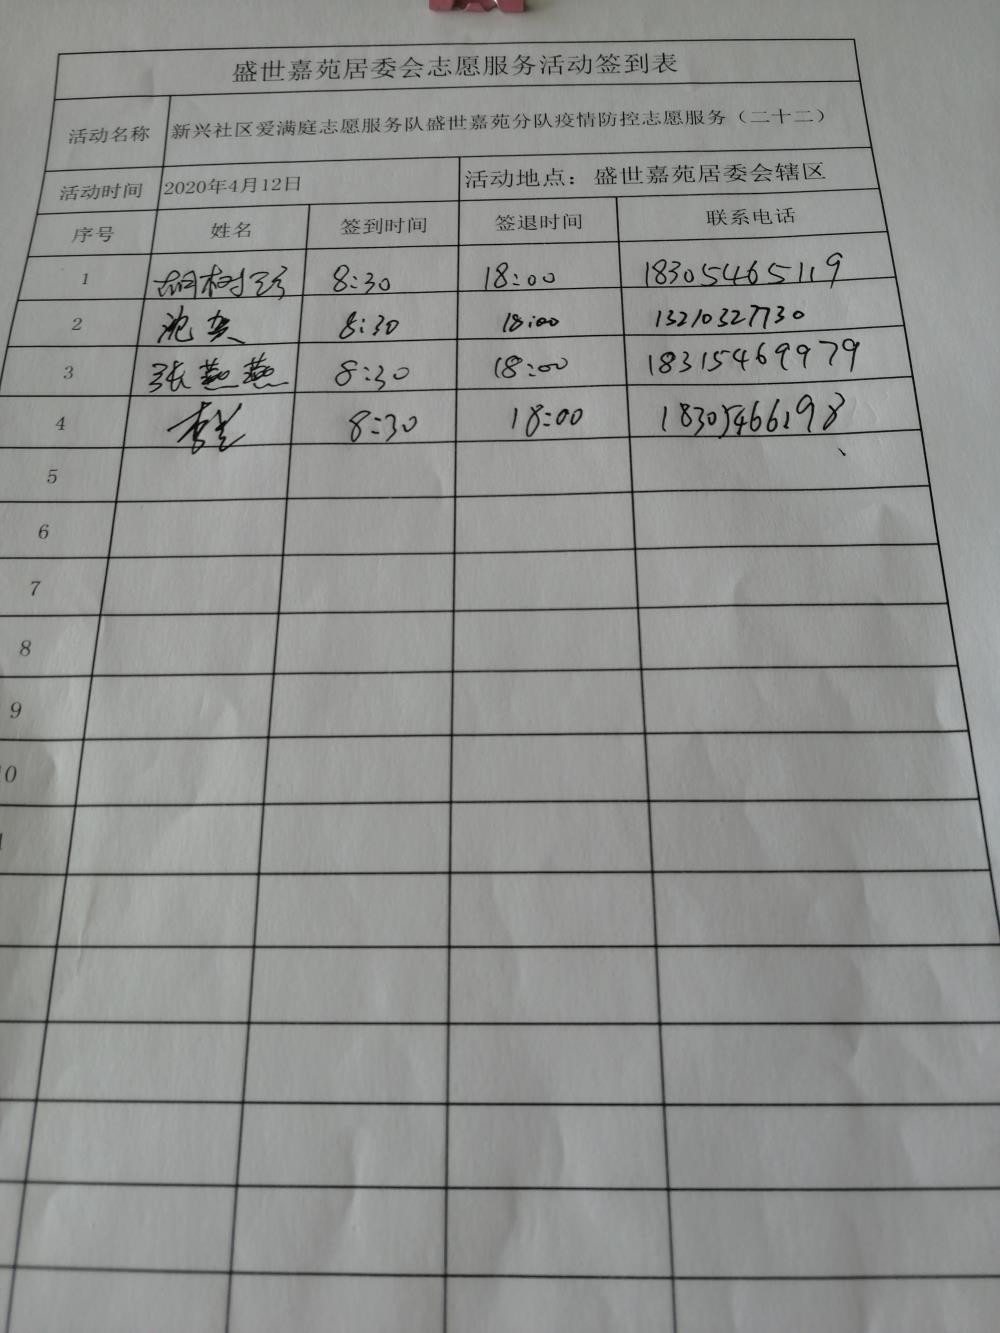 盛世嘉苑居委会志愿服务活动签到表
活动名称 新兴社区爱满庭志愿服务队盛世嘉苑分队疫情防控志愿服务（二十二）
活动时间 2020年4月12日 活动地点：盛世嘉苑居委会辖区
序号 姓名 签到时间 签退时间 联系电话
1 8:30 18:00 18305465119
2 8:30 18:00 13210327730
3 张燕燕 8:30 18:00 18315469979
4 8:30 18:00
5
6
7
8
9